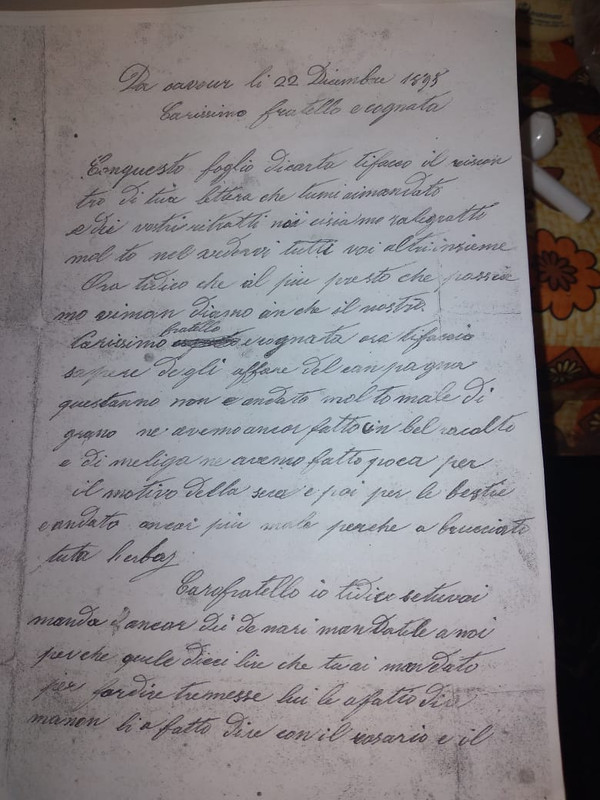 Da cavour li 22 Dicembre 1895
Carissimo fratello e cognata
Conquesto foglio dicarta tifacco il riscon
tro di tua lettera che tumi aimandato
e dei vostri ritratti noi cisiamo ralegratti
mol to nel vedervi tutti voi altri insieme
Ora tidico che al piu presto che possia
mo riman diamo anche il nostro.
fratello
Carissimo ecognata ora tifaccio
sapere degli affare del canpagna
questanno non e andato mol to male di
grano ne avemo ancor fatto un bel racolto
e di meliga ne avemo fatto poca per
il motivo della seca e poi per le bestie
e andato ancor piu male perche a brucciato
tuta herba
Carofratello io tidico setuvoi
manda ancor dei de nari mandatele a noi
perche quele dieci lire che tu ai mandato
per fardire tre messe lui le a fatto dire
manon li a fatto dire con il rosario e il